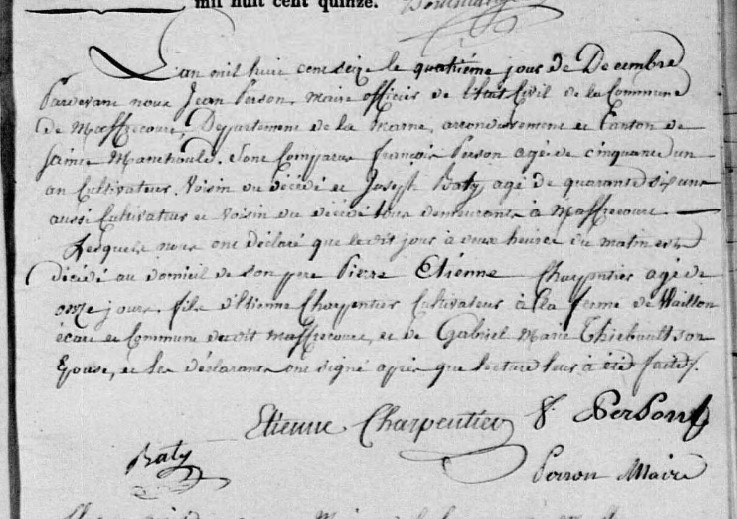 mil huit cent quinze.
L'an mil huit cent seize le quatriéme jour de Decembre
Pardevant nous Jean Person, maire officier de l'Etat Civil de la Commune
de Maffrecourt, Departement de la Marne, arrondissement et Canton de
Sainte Manehould. Sont Comparus François Person agé de cinquante un
an Cultivateur, Voisin du décédé et Joseph Baty agé de quarante six ans
aussi Cultivateur et voisin du décédé tous demeurants à Maffrecourt.
Lesquels nous ont déclaré que ledit jour à deux heures du matin est
décédé au domicil de son pere Pierre Etiénne Charpentier agé de
onze jours, fils d'Etienne Charpentier Cultivateur à la ferme de
écart et Commune dudit Maffrecourt, et de Gabriel Marie Thiebault son
Epouse, et les déclarants ont signé après que lecture leur à été faite.
Etienne Charpentier F. Person
Baty
Person Maire